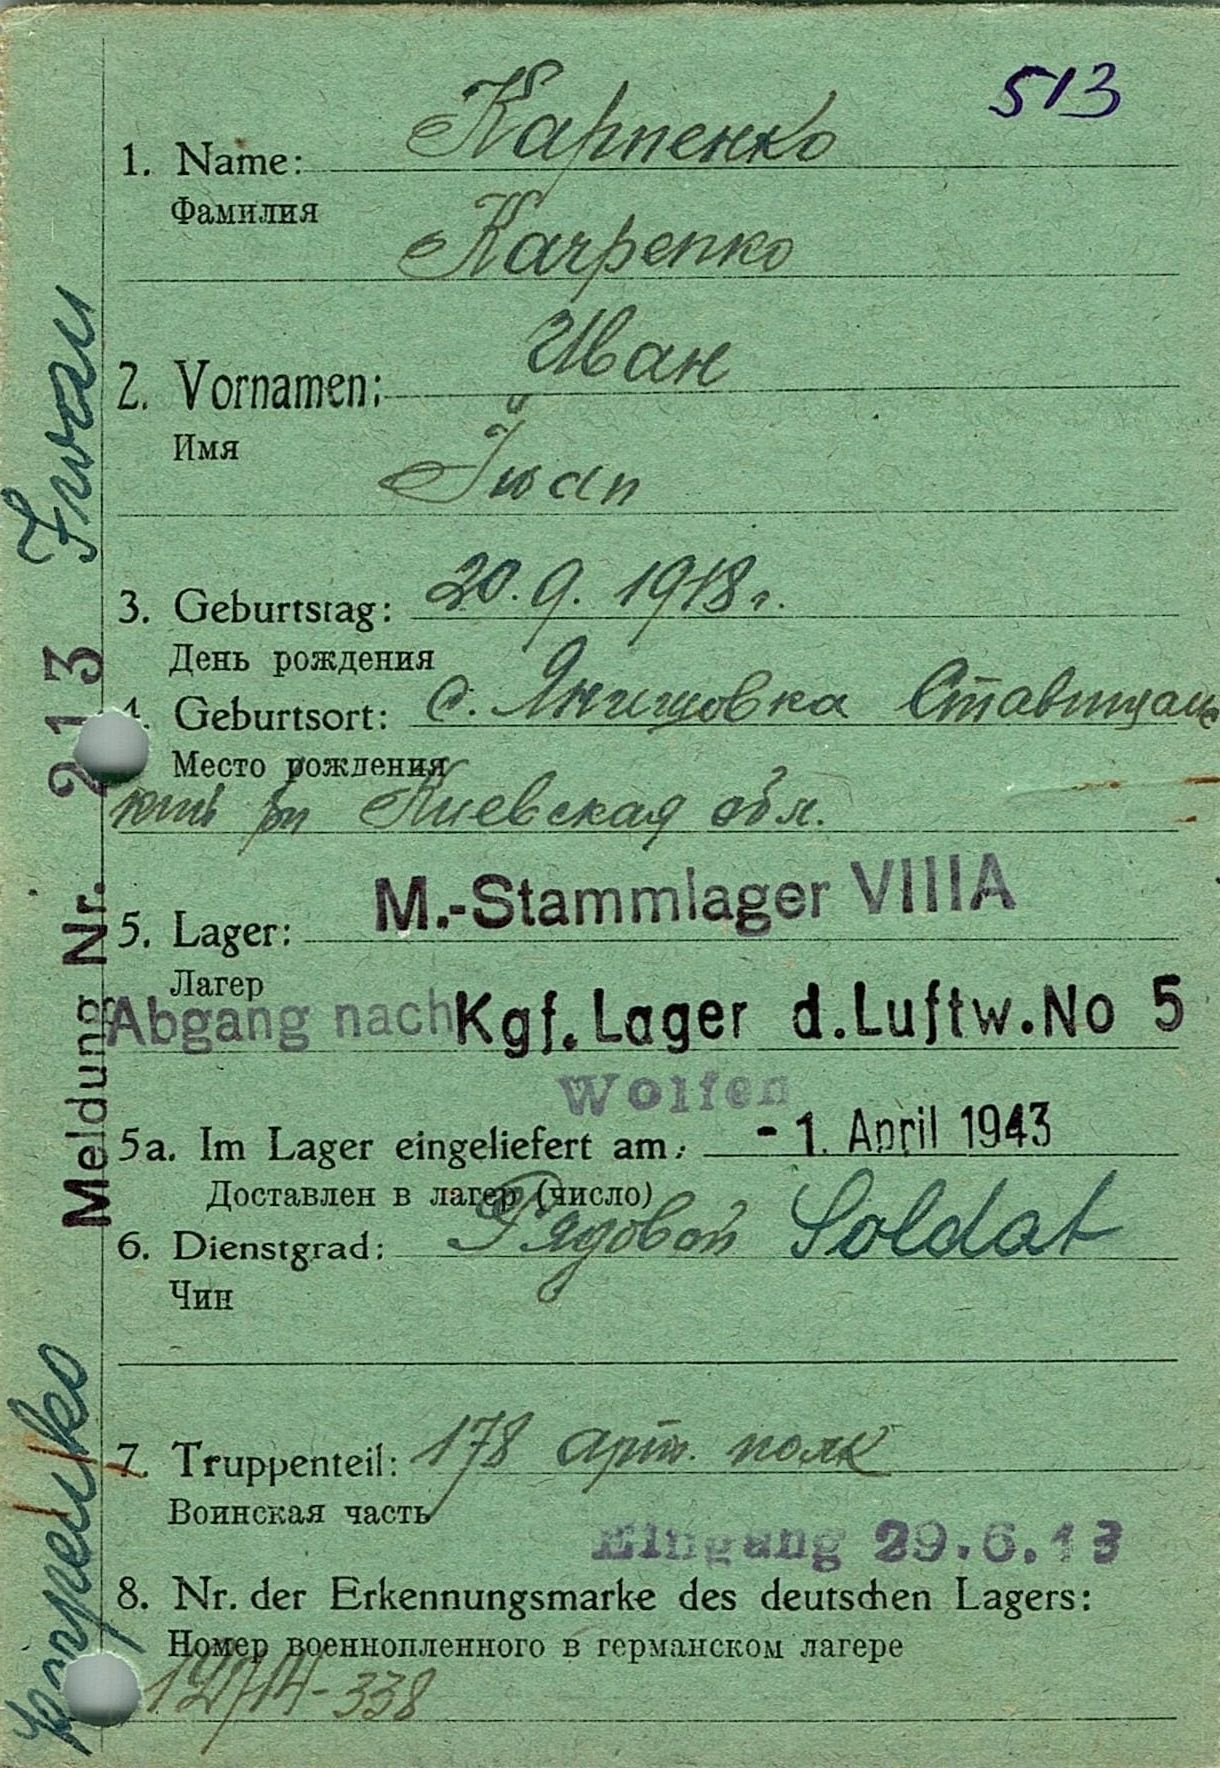 513
1. Name: Карпенко
Фамилия
Карпенко
2. Vornamen: Иван
Имя
Iwan
3. Geburtstag: 20.9.1918 г.
День рождения
4. Geburtsort: с. Янишовка
Место рождения
Киевская обл.
5. Lager: M.-Stammlager VIIIA
Лагер
Abgang nach Kgf. Lager d.Luftw.No 5
Wolfen
5a. Im Lager eingeliefert am: - 1. April 1943
Доставлен в лагер (число)
6. Dienstgrad: Рядовой Soldat
Чин
7. Truppenteil: 178 арт. полк
Воинская часть
Eingang 29.6.43
8. Nr. der Erkennungsmarke des deutschen Lagers:
Номер военнопленного в германском лагере
338
Meldung Nr. 213
Iwan